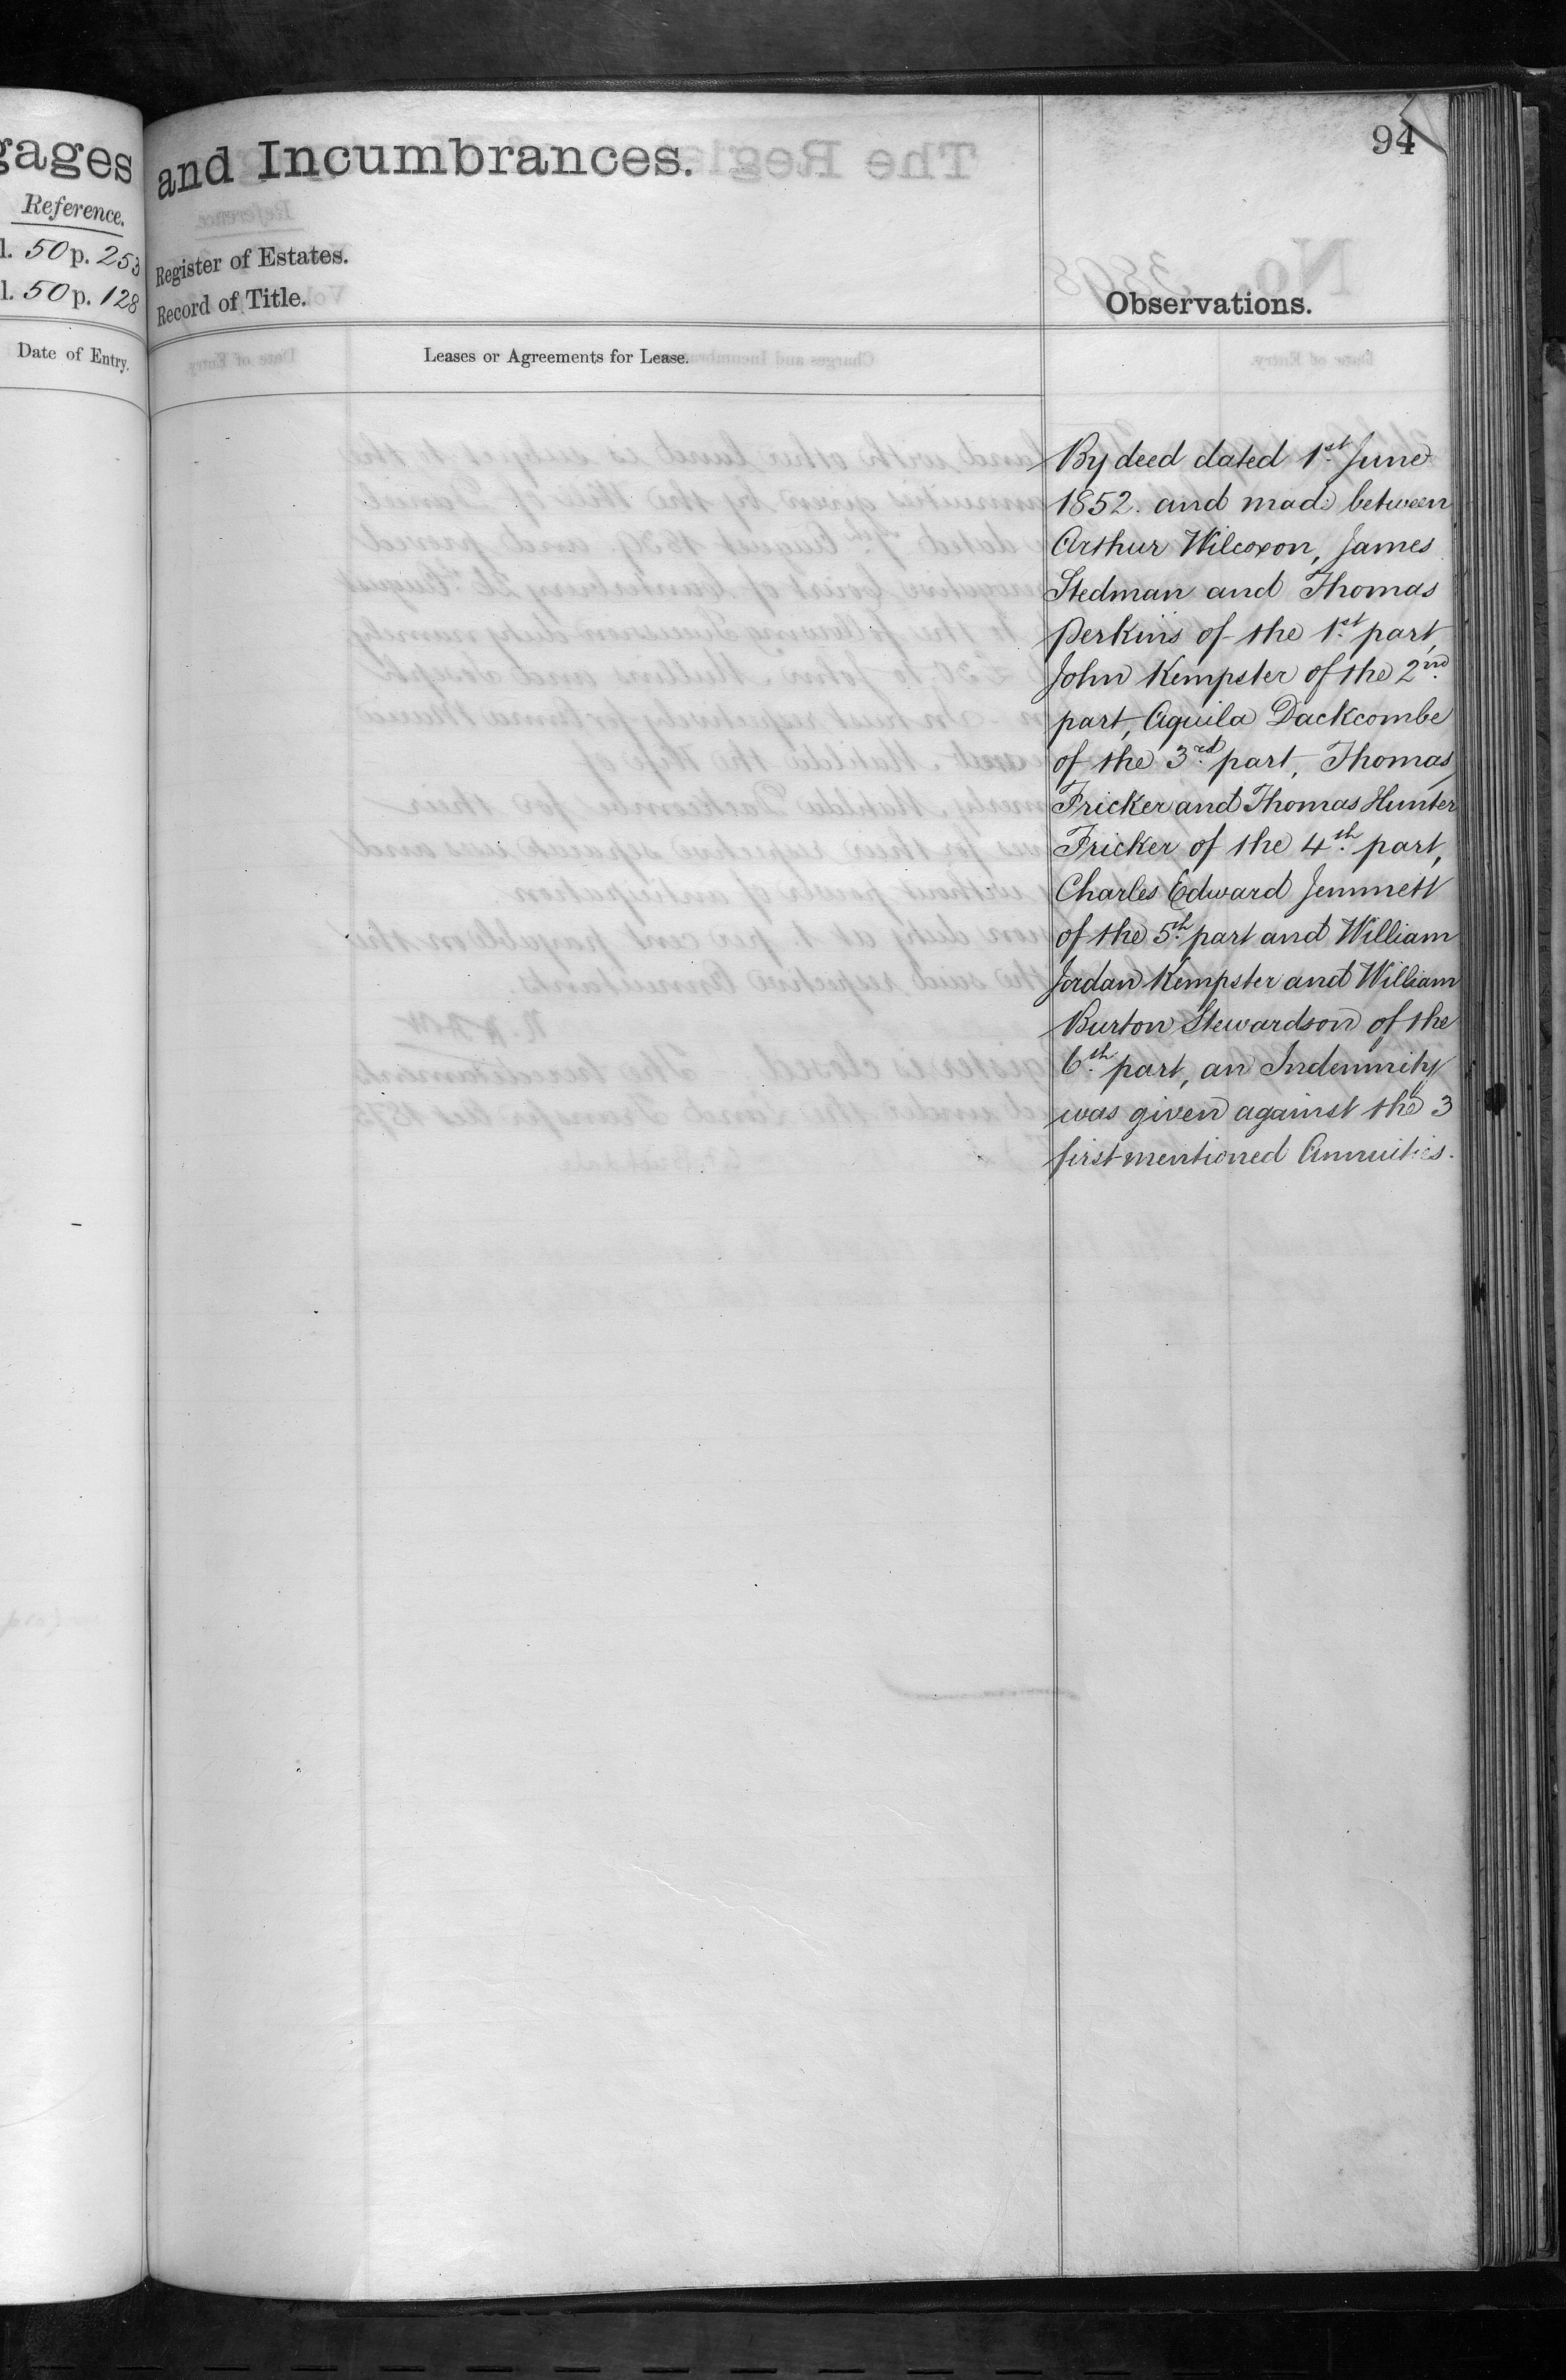 gages
Reference.
l. 50 p. 253
l. 50 p. 128
Date of Entry.
and Incumbrances.
94
Register of Estates.
Record of Title.
Observations.
Leases or Agreements for Lease.
By deed dated 1st June
1852. and made between
Arthur Wilcoxon, James
Stedman and Thomas
Perkins of the 1st part,
John Kempster of the 2nd
part, Aquila Dackcombe
of the 3rd part, Thomas
Fricker and Thomas Hunter
Fricker of the 4th part,
Charles Edward Jemmett
of the 5th part and William
Jordan Kempster and William
Burton Stewardson of the
6th part, an Indemnity
was given against the 3
first mentioned Annuities.